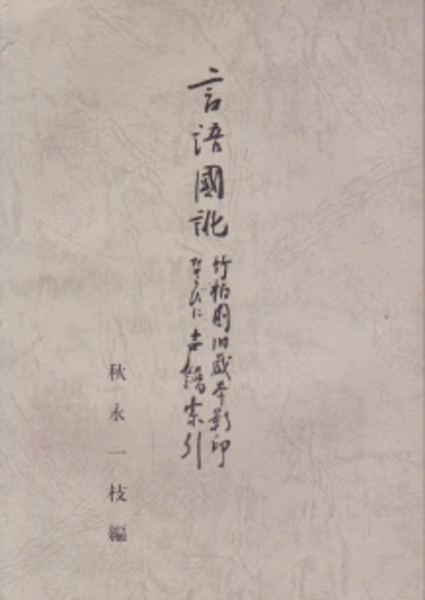 言語國訛
竹柏園旧蔵本影印
ならびに声譜索引
秋永一枝編